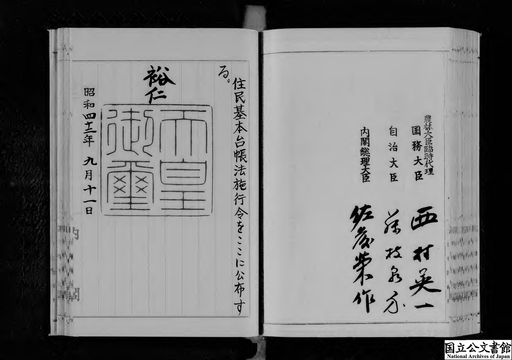 農林大臣臨時代理
国務大臣 西村英一
自治大臣 藤枝泉介
内閣総理大臣 佐藤榮作
住民基本台帳法施行令をここに公布す
る。
裕仁
天皇
御璽
昭和四十二年九月十一日
国立公文書館
National Archives of Japan